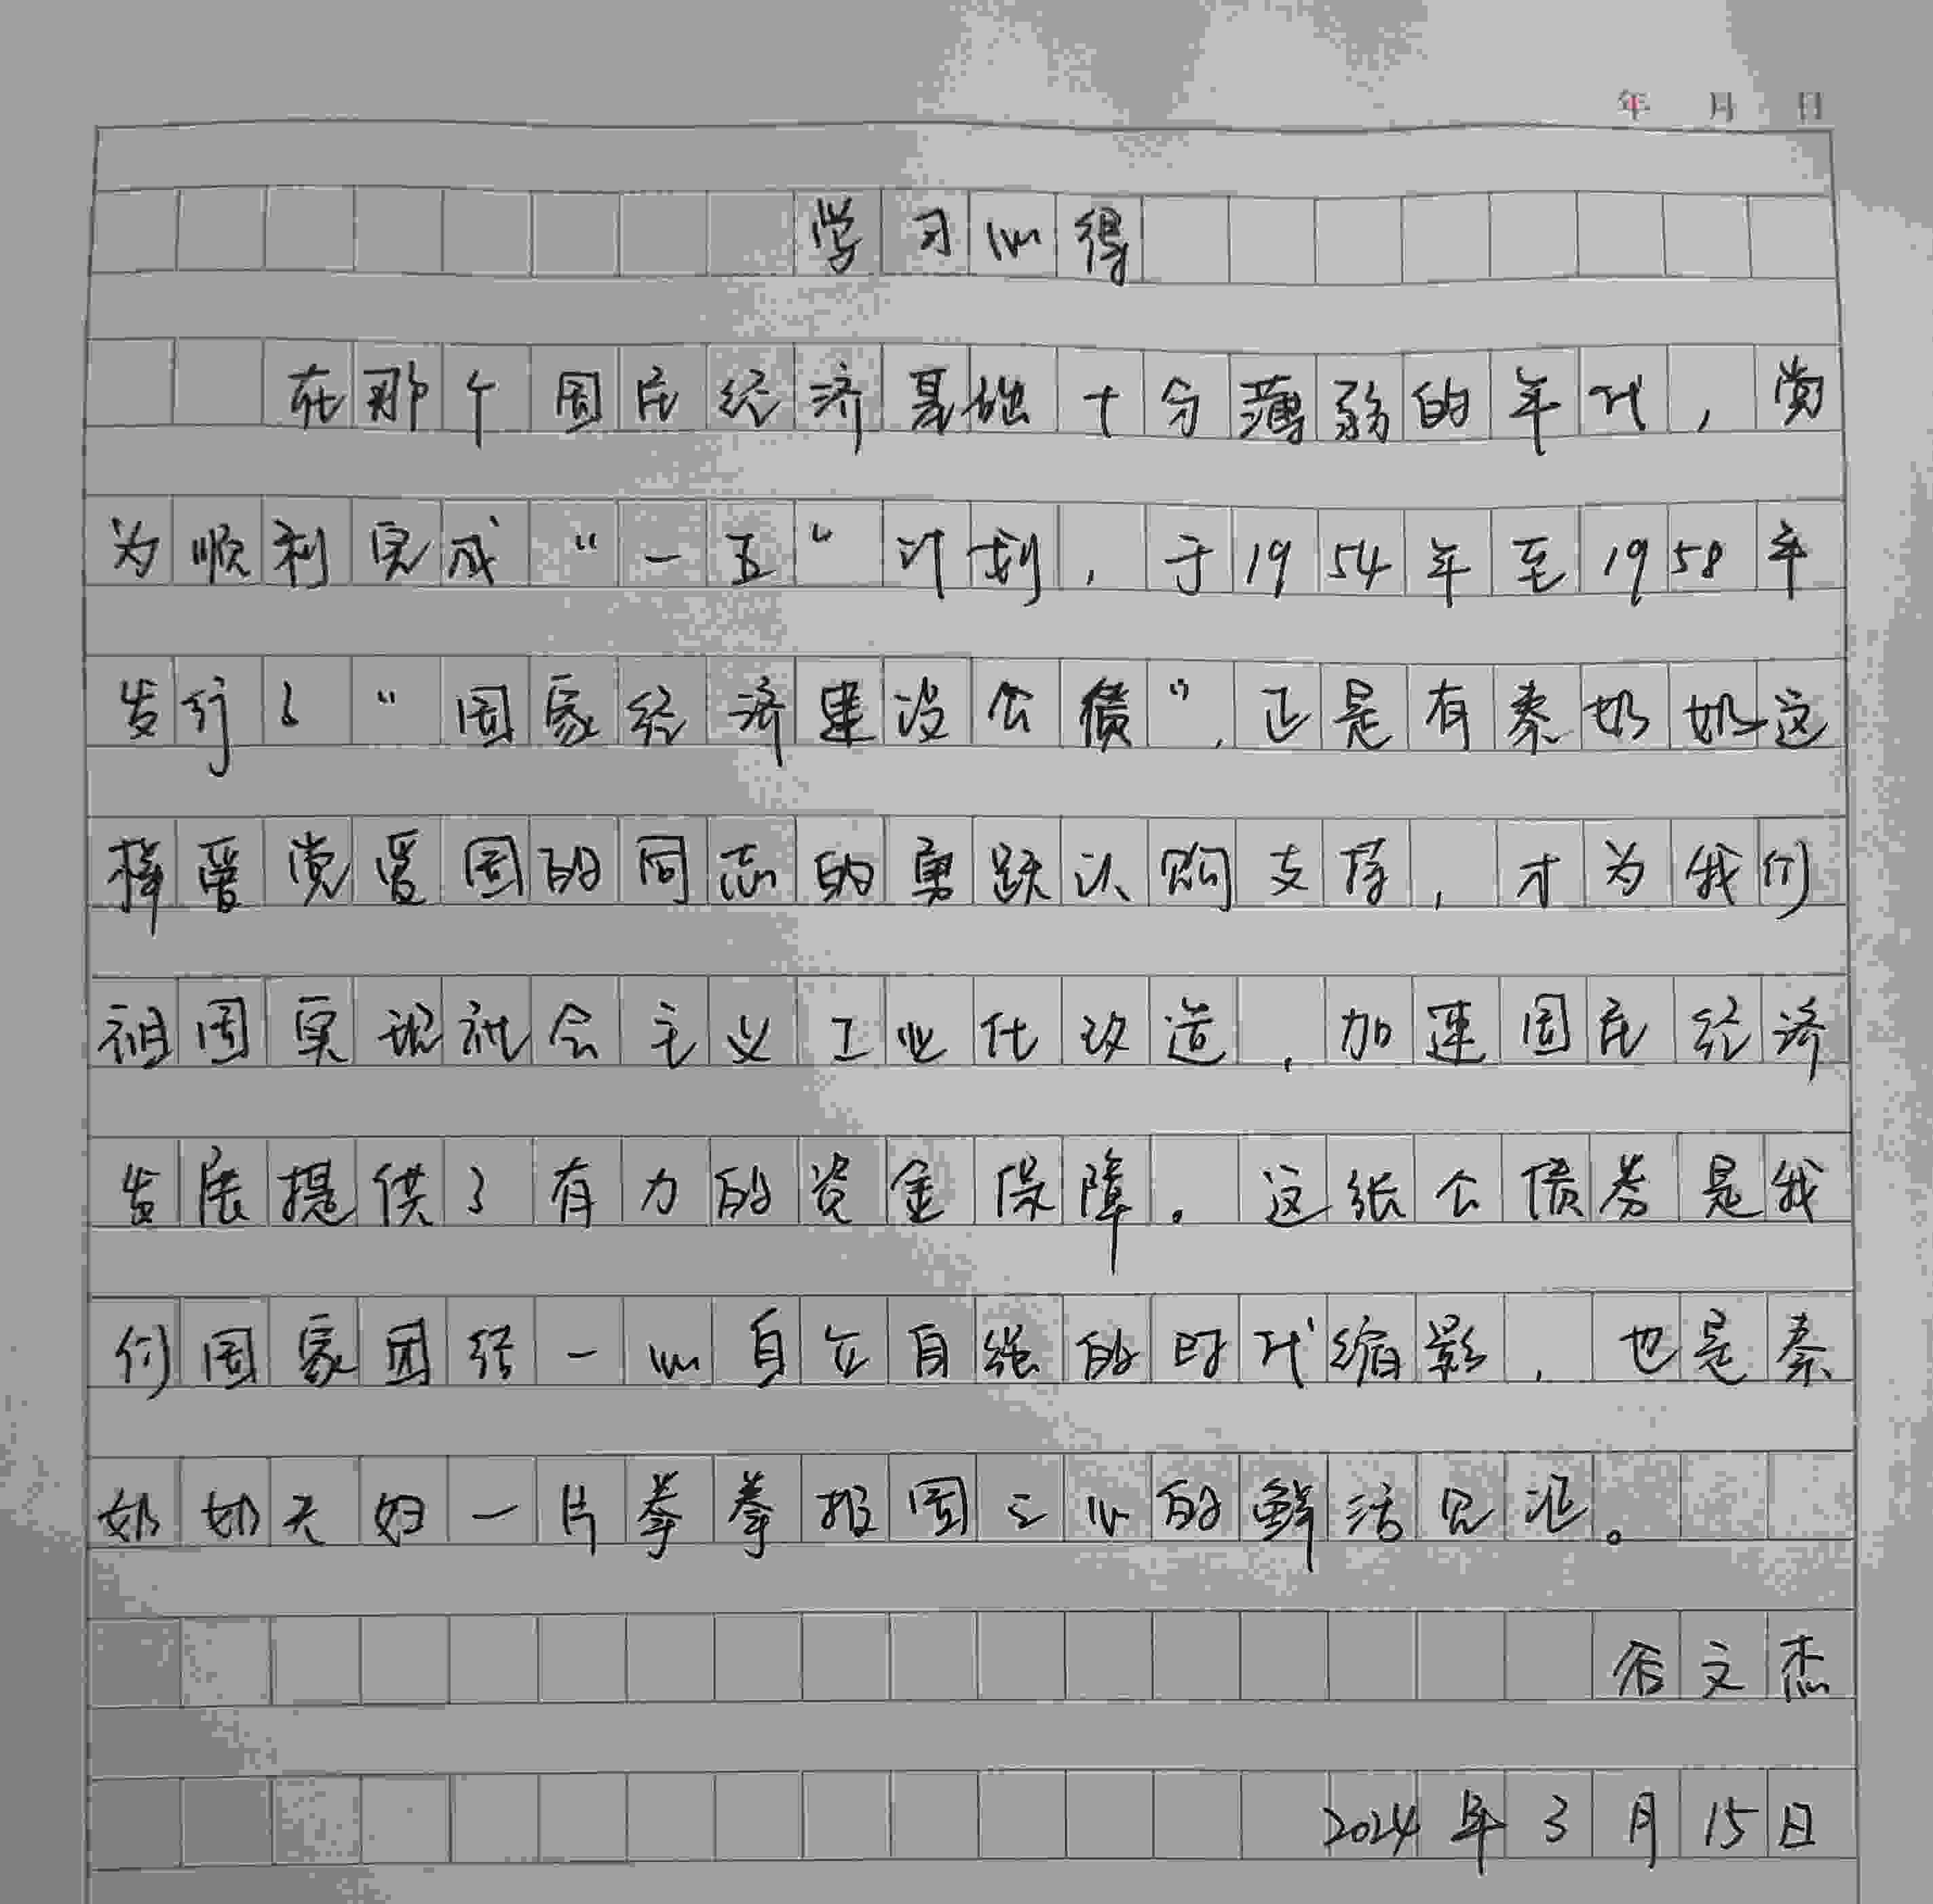 年 月 日
学习心得
在那个国民经济基础十分薄弱的年代，党
为顺利完成“一五”计划，于1954年至1958年
发行了“国家经济建设公债”，正是有秦奶奶这
样爱党爱国的同志的勇跃认购支持，才为我们
祖国实现社会主义工业化改造，加速国民经济
发展提供了有力的资金保障。这张公债券是我
们国家团结一心自立自强的时代缩影，也是秦
奶奶夫妇一片拳拳报国之心的鲜活见证。
谷文杰
2024年3月15日